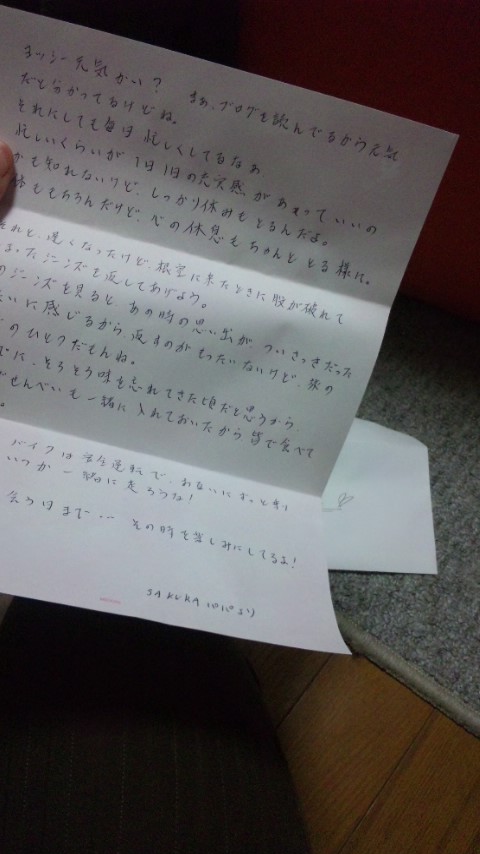 ヨッシー元気かい? まぁ、ブログを読んでるから元気
だと分かってるけどね。
それにしても毎日忙しくしてるなぁ
忙しいくらいが1日1日の充実感があっていいの
かも知れないけど、しっかり休みもとるんだよ。
体ももちろんだけど、心の休息もちゃんととる様に。
それと、遅くなったけど、根室に来たときに股が破れて
たジーンズを返してあげよう。
のジーンズを見ると、あの時の思い出が、ついさっきだった
いに感じるから返すのがもったいないけど、旅の
のひとつだもんね。
でに、そろそろ味を忘れてきた頃だと思うから、
せんべいも一緒に入れておいたから皆で食べて
。
バイクは安全運転で、
いつか一緒に走ろうな!
会う日まで… その時を楽しみにしてるよ!
SAKURA パパより